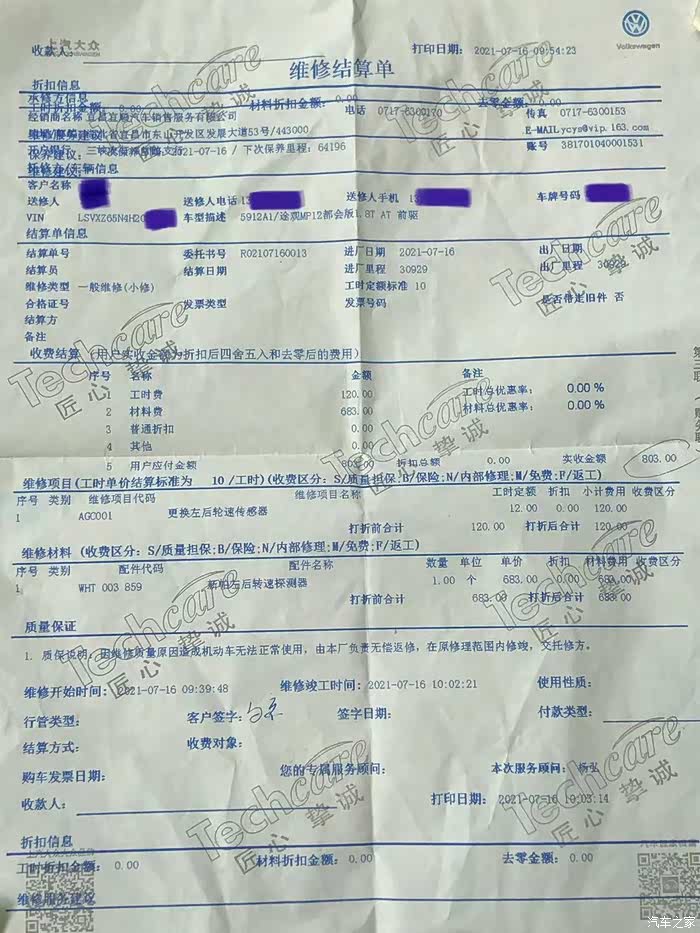 上汽大众
收款人：
打印日期：2021-07-16 09:54:23
Volkswagen
维修结算单
折扣信息
承修方信息
工时折扣金额：0.00 材料折扣金额：0.00 去零金额：0.00
经销商名称 宜昌宜顺汽车销售服务有限公司 电话 0717-6300170 传真 0717-6300153
维修服务建议
省宜昌市东山开发区发展大道53号/443000 E-MAIL ycys@vip.163.com
开户银行 三峡 支行 账号 381701040001531
保养建议： 2021-07-16 / 下次保养里程：64196
维修建议：
托修方/车辆信息
客户名称
送修人 送修人电话 13 送修人手机 13 车牌号码
VIN LSVXZ65N4H20 车型描述 5912A1/途观MP12都会版1.8T AT 前驱
结算单信息
结算单号 委托书号 R02107160013 进厂日期 2021-07-16 出厂日期
结算员 结算日期 进厂里程 30929 出厂里程 30929
维修类型 一般维修(小修) 工时定额标准 10
合格证号 发票类型 发票号码 是否带走旧件 否
结算方
备注
收费结算 （用户实收金额为折扣后四舍五入和去零后的费用）
序号 名称 金额 备注
1 工时费 120.00 工时总优惠率： 0.00 %
2 材料费 683.00 材料总优惠率： 0.00 %
3 普通折扣 0.00
4 其他 0.00
5 用户应付金额 803.00 折扣总额 0.00 实收金额 803.00
维修项目(工时单价结算标准为 10 /工时)(收费区分：S/质量担保;B/保险;N/内部修理;M/免费;F/返工)
序号 类别 维修项目代码 维修项目名称 工时定额 折扣 小计费用 收费区分
1 AGC001 更换左后轮速传感器 12.00 0.00 120.00
打折前合计 120.00 打折后合计 120.00
维修材料 (收费区分：S/质量担保;B/保险;N/内部修理;M/免费;F/返工)
序号 类别 配件代码 配件名称 数量 单位 单价 折扣 材料费用 收费区分
1 WHT 003 859 新帕左后转速探测器 1.00 个 683.00 0.00 683.00
打折前合计 683.00 打折后合计 683.00
质量保证
1. 质保说明，因维修质量原因造成机动车无法正常使用，由本厂负责无偿返修，在原修理范围内修竣，交托修方。
维修开始时间：2021-07-16 09:39:48 维修竣工时间：2021-07-16 10:02:21 使用性质：
行管类型： 客户签字： 签字日期： 付款类型：
结算方式： 收费对象：
购车发票日期： 您的专属服务顾问： 本次服务顾问：杨弘
收款人： 打印日期：2021-07-16 10:03:14
折扣信息
工时折扣金额：0.00 材料折扣金额：0.00 去零金额：0.00
维修服务建议
Techcare
匠心挚诚
Techcare
匠心挚诚
Techcare
匠心挚诚
Techcare
匠心挚诚
Techcare
匠心挚诚
Techcare
匠心挚诚
Techcare
匠心挚诚
Techcare
匠心挚诚
汽车之家